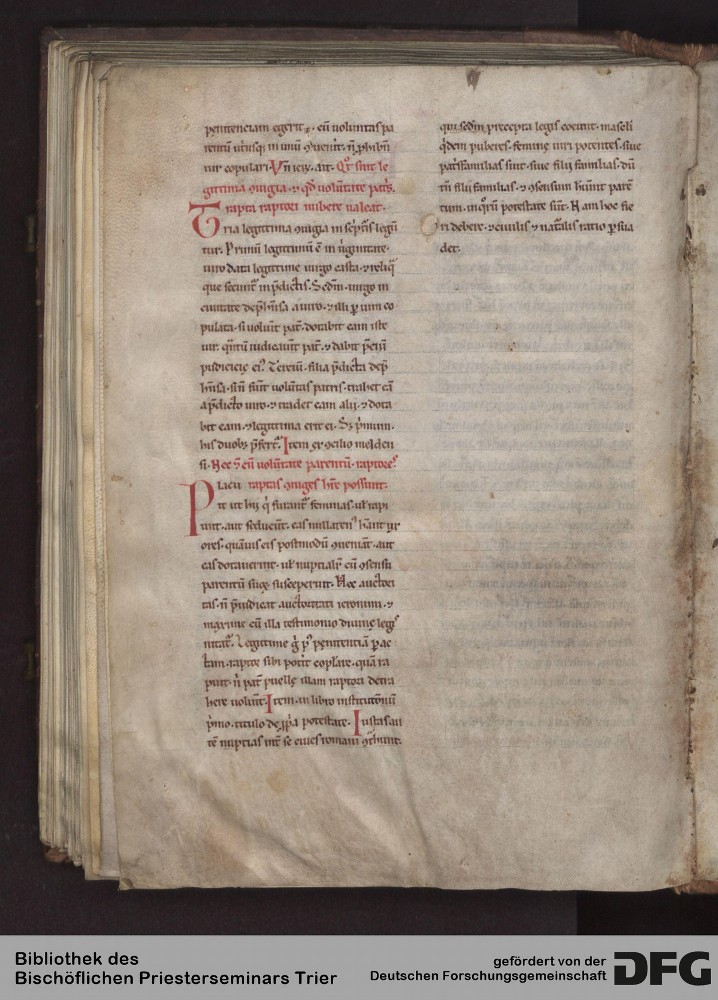 penitenciam egerit, cū uoluntas pa
rentū utriusq; in unū ɔuenit. n̄ phibet̄
uir copulari. Vn̄ iero. ait. Qđ sint le
gitima ɔiugia. ⁊ qđ uolūtate patris.
rapta raptori nubere ualeat.
Tria legittima ɔiugia in scripturis legūt
tur. Primū legittimū ē in uirginitate.
uiro data legittime uirgo casta. ⁊ reliq̄
que secunt̄ in p̄dictis. Scdm̄. uirgo in
ciuitate dep̄hensa a uiro. ⁊ illi p̱ uim co
pulata. si uolunt̄ pat̄. dotabit eam iste
uir. q̄ntū iudicauit pat̄. ⁊ dabit p̄ciū
pudicicie ei᷒. Terciū. filia p̄dicta dep̄
hensa. si n̄ fuit uoluntas patris. trahet eā
a p̄dicto uiro. ⁊ tradet eam alij. ⁊ dota
bit eam. ⁊ legittima erit ei. Sꝫ p̄imum.
his duobꝫ p̄fert̄. Item ex ɔcilio melden
si. Nec ⁊ cū uolūtate parentū. raptores
raptas ɔiuges hr̄e possunt.
Placuit ut hij q̇ furant̄ feminas. ul̄ rapi
unt. aut seducunt. eas nullaten᷒ habeant ux
ores. quāuis eis postmodū ɔueniāt. aut
eas dotauerint. ul̄ nuptialit̄ cū ɔsensu
parentū suoꝝ susceperint. Hec auctori
tas. n̄ p̄iudicat auctoritati ieronimi. ⁊
maxime cū illa testimonio diuine legis
nitat̄. Legitime g̊ p᷒ penitentiā p̱ac
tam. raptor sibi poterit copulare. quā ra
puit. nisi pat̄ puelle illam raptori detra
here uoluerit. Item. in libro institutionū
p̄mo. titulo de patria potestate. Iustas au
tē nuptias int̄ se ciues romani ɔtrahunt.
qui scdm̄ precepta legis coeunt. masculi
q̇dem puberes. femine uiri potentes. siue
patresfamilias sint. siue filij familias. dū
tn̄ filij familias. ⁊ ɔsensum habeant paren
tum. in quorū potestate sunt. Nam hoc fie
ri debere. ⁊ ciuilis ⁊ naturalis ratio p̱sua
det.
Bibliothek des
Bischöflichen Priesterseminars Trier
gefördert von der
Deutschen Forschungsgemeinschaft DFG